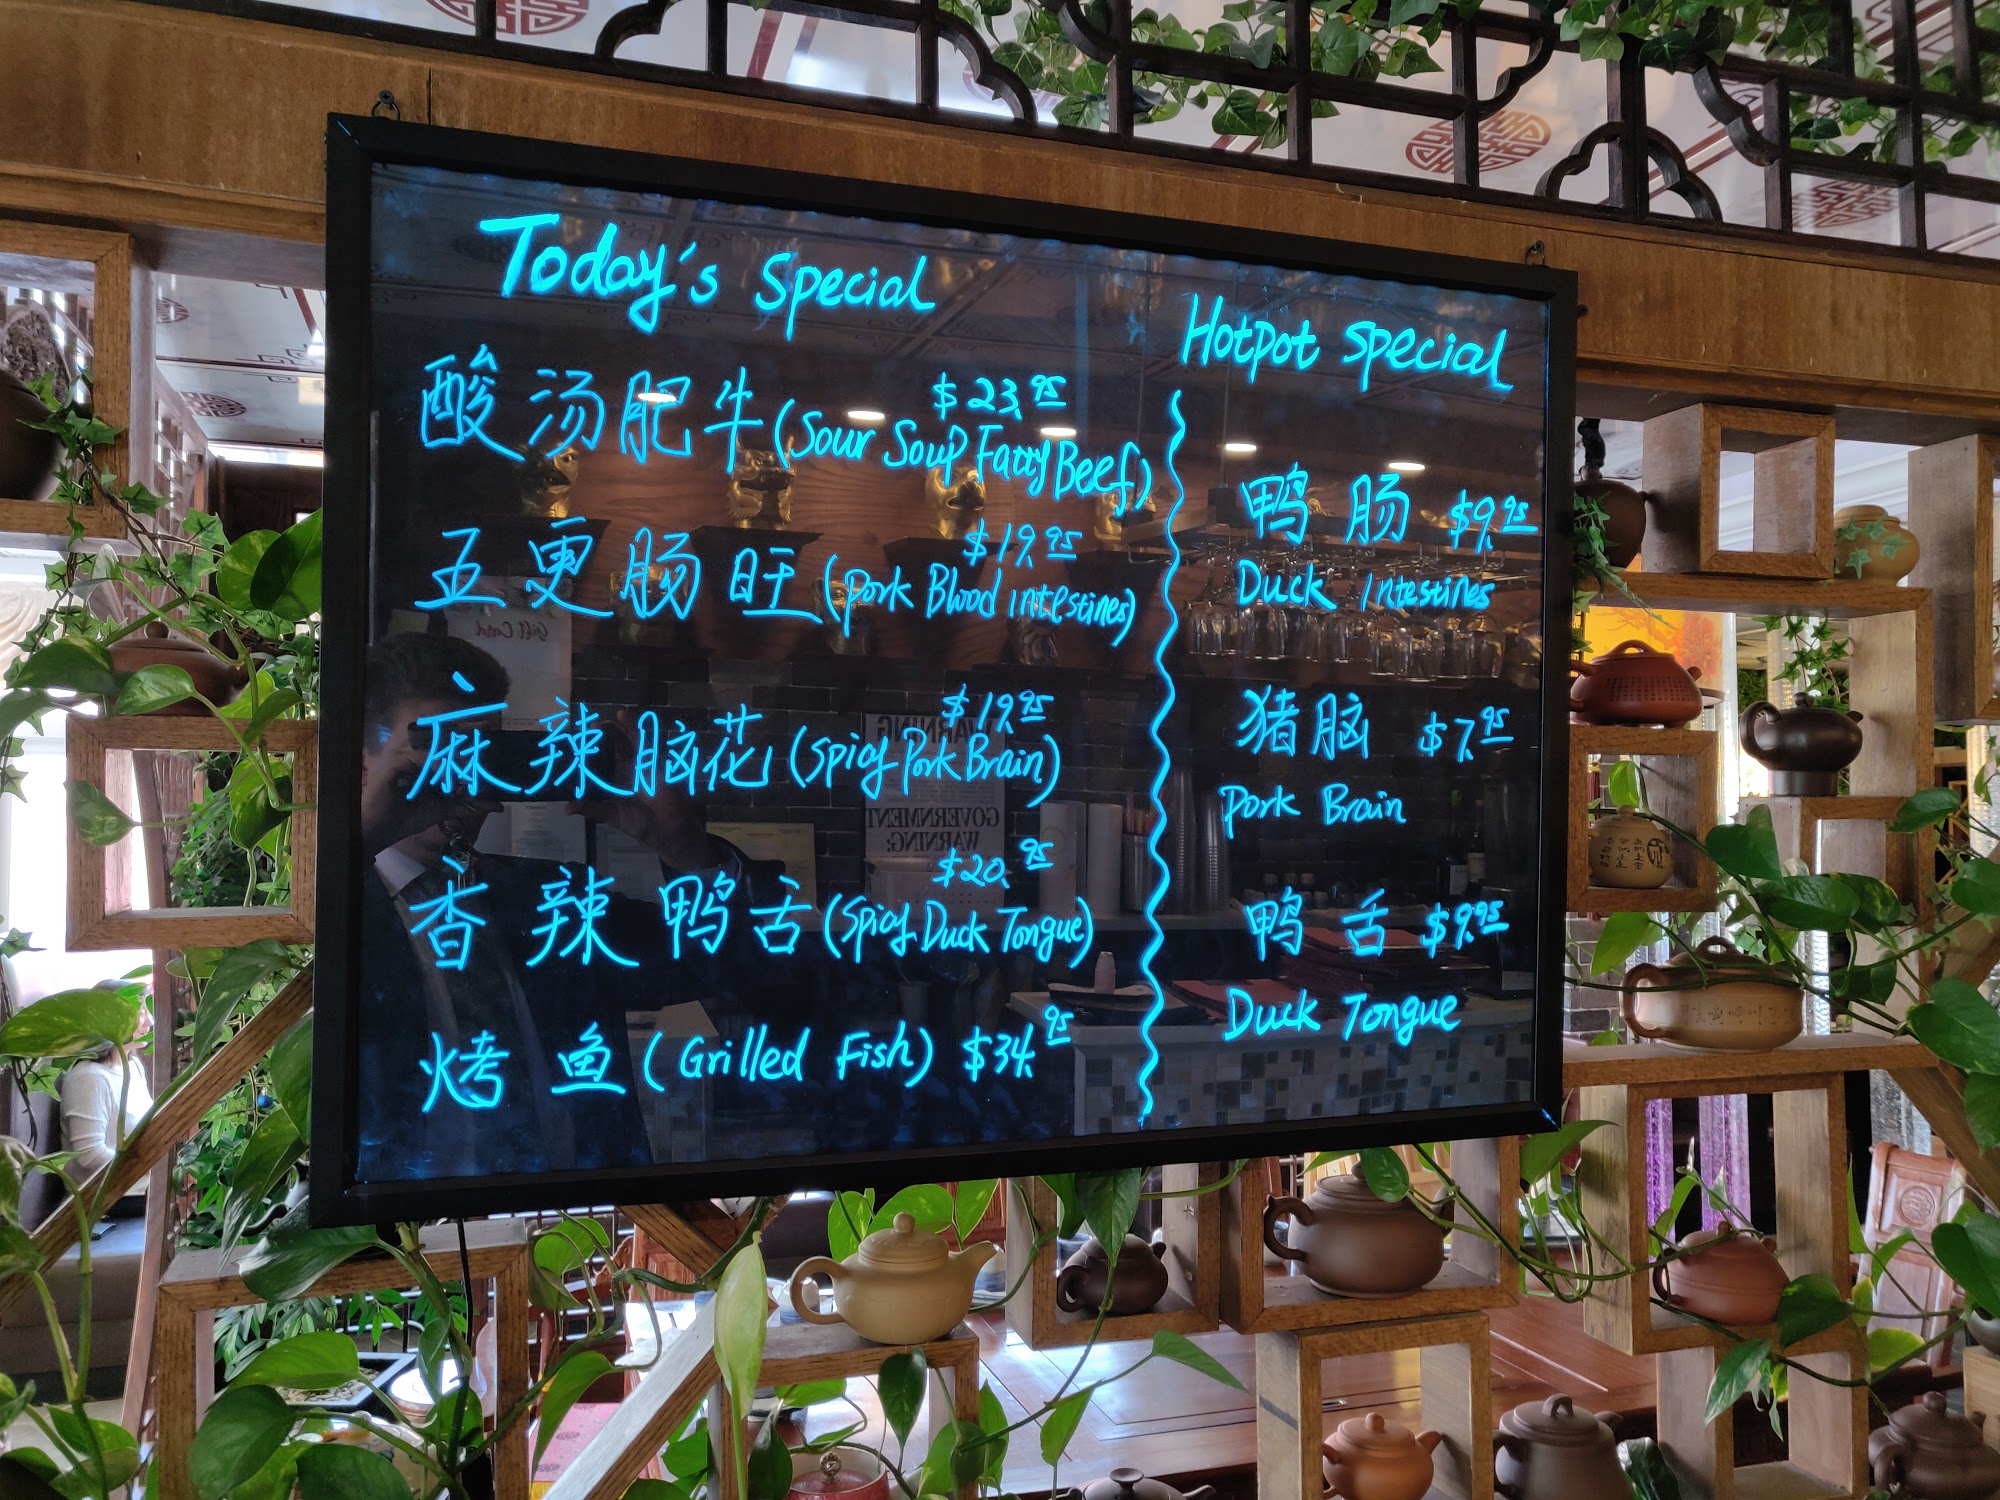 Today's Special
$23.95
酸汤肥牛(Sour Soup Fatty Beef)
$19.95
五更肠旺(Pork Blood intestines)
$19.95
麻辣脑花(Spicy Pork Brain)
$20.95
香辣鸭舌(Spicy Duck Tongue)
烤鱼(Grilled Fish) $34.95
Hotpot Special
鸭肠 $9.95
Duck Intestines
猪脑 $7.95
Pork Brain
鸭舌 $9.95
Duck Tongue
Gift Card
WARNING
GOVERNMENT
WARNING: